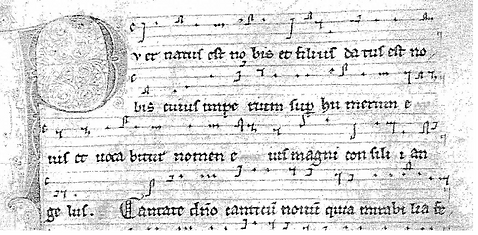 P v er natus est no bis et filius da tus est no
bis cuius impe rium sup hu merum e
ius et voca bitur nomen e ius magni con sili i an
ge lus. Cantate dño canticū nouū quia mirabi lia fe